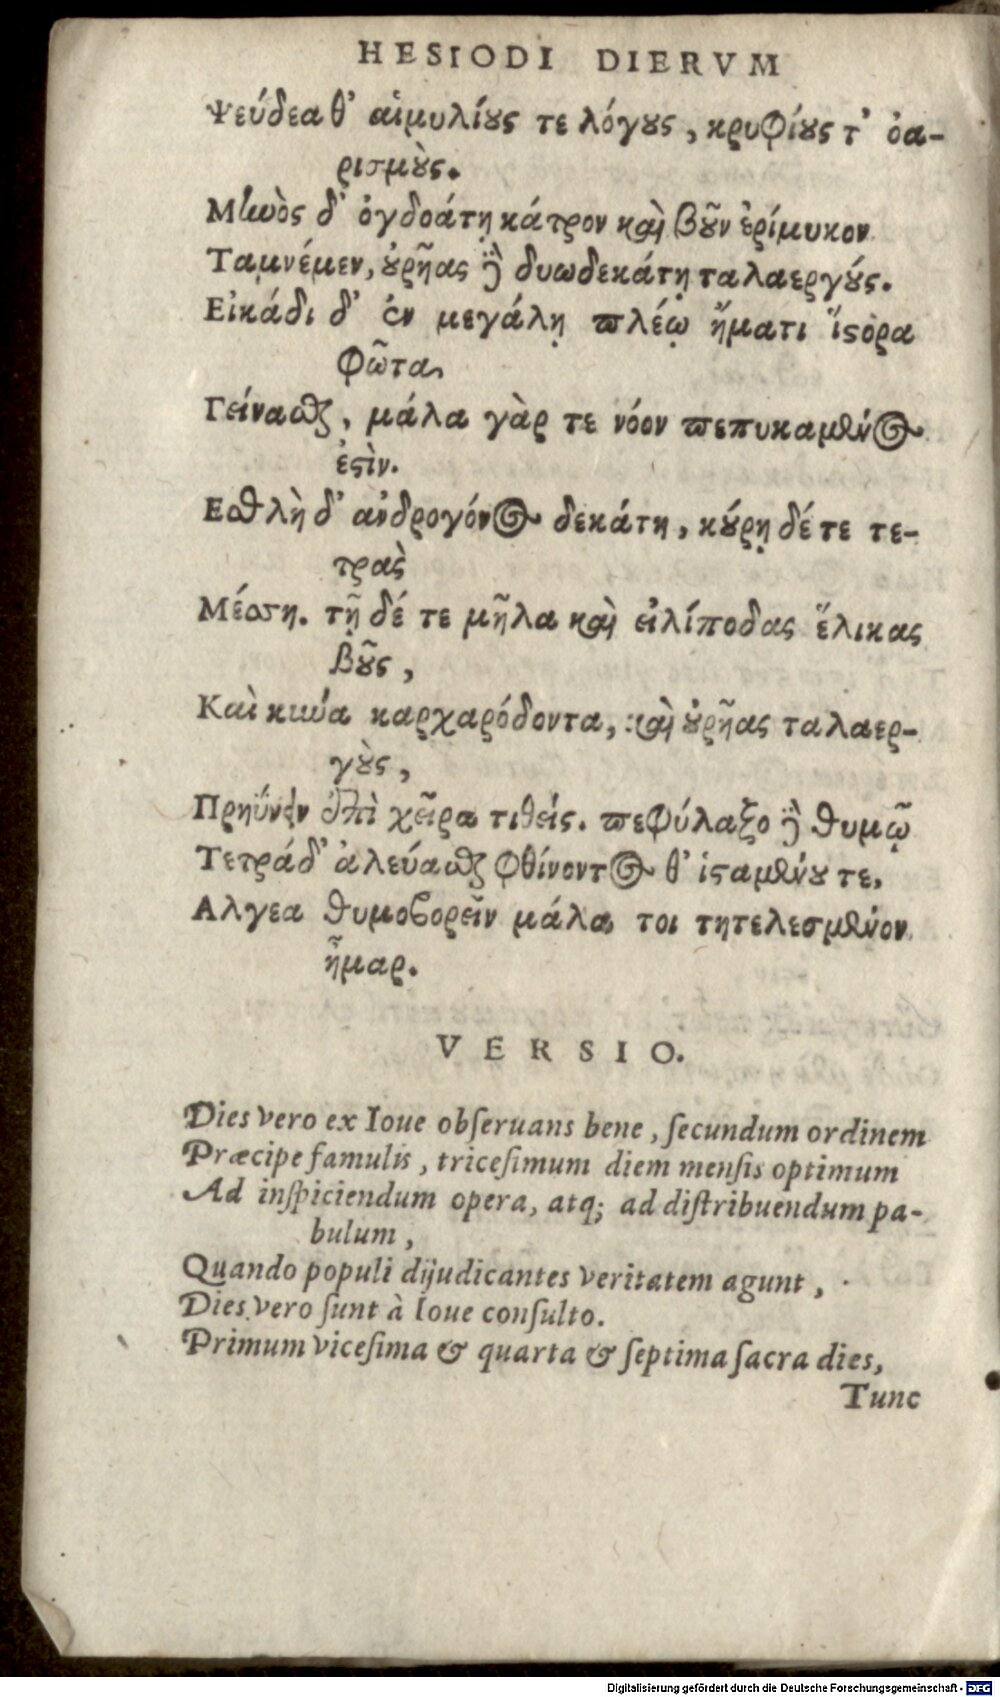 HESIODI DIERVM
Ψεύδεα θ' αἱμυλίους τε λόγους, κρυφίους τ' ὀα-
ρισμοὺς.
Μηνὸς δ' ὀγδοάτῃ κάπρον καὶ βοῦν ἐρίμυκον
Ταμνέμεν, οὐρῆας δὲ δυωδεκάτῃ ταλαεργούς.
Εἰκάδι δ' ἐν μεγάλῃ πλέῳ ἤματι ἵστορα
φῶτα
Γείνασθαι, μάλα γὰρ τε νόον πεπυκαμένος
ἐστὶν.
Εσθλὴ δ' ἀνδρογόνος δεκάτη, κούρῃ δέ τε τε-
τρὰς
Μέσση. τῇ δέ τε μῆλα καὶ εἰλίποδας ἕλικας
βοῦς,
Καὶ κύνα καρχαρόδοντα, καὶ οὐρῆας ταλαερ-
γοὺς,
Πρηΰνειν ἐπὶ χεῖρα τιθείς. πεφύλαξο δὲ θυμῷ
Τετράδ' ἀλεύασθαι φθίνοντος θ' ἱσταμένου τε,
Αλγεα θυμοβορεῖν μάλα τοι τητελεσμένον
ἦμαρ.
VERSIO.
Dies vero ex Ioue obseruans bene, secundum ordinem
Præcipe famulis, tricesimum diem mensis optimum
Ad inspiciendum opera, atq; ad distribuendum pa-
bulum,
Quando populi dijudicantes veritatem agunt,
Dies vero sunt à Ioue consulto.
Primum vicesima & quarta & septima sacra dies,
Tunc
Digitalisierung gefördert durch die Deutsche Forschungsgemeinschaft - DFG